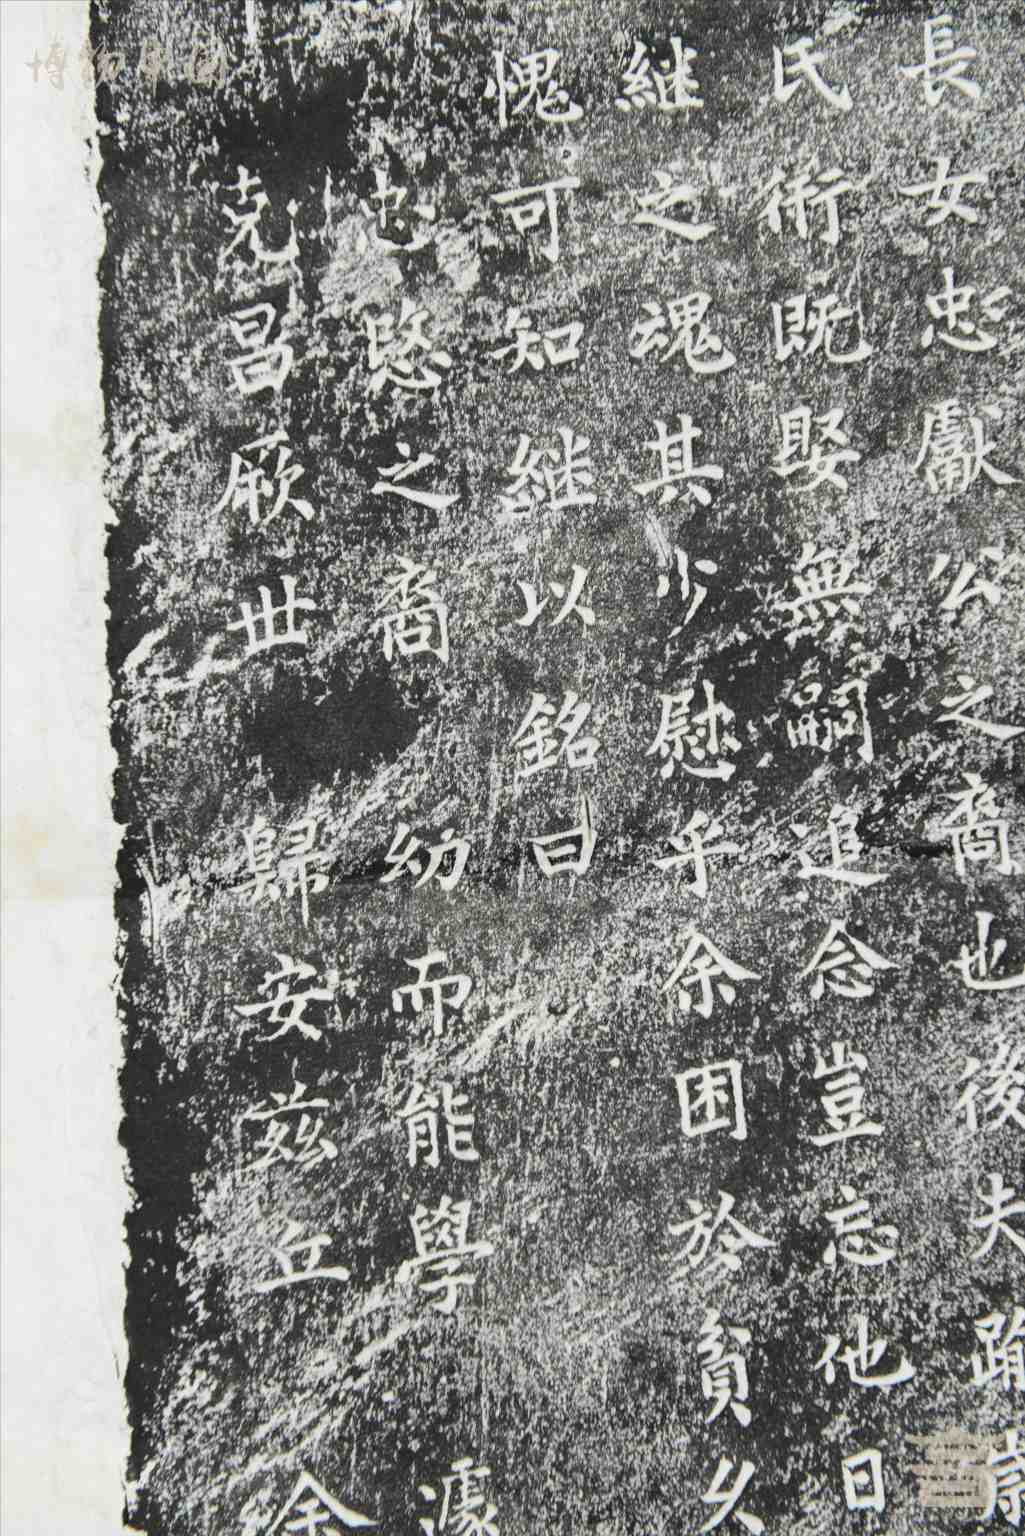 長女忠獻公之裔也後夫踰歲
氏術既娶無嗣追念豈忘他日
継之魂其少慰乎余困於貧久
愧可知継以銘曰
忠愍之裔 幼而能學 濠
克昌厥世 歸安茲丘 余